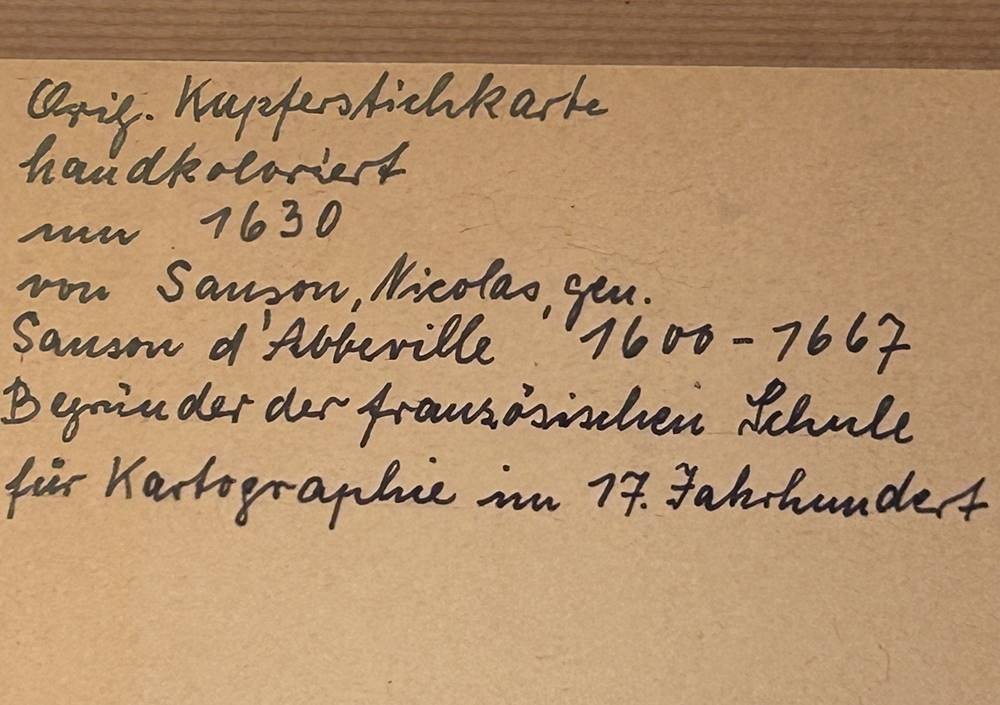 Orig. Kupferstichkarte
handkoloriert
um 1630
von Sanson, Nicolas, gen.
Sanson d'Abbeville 1600-1667
Begründer der französischen Schule
für Kartographie im 17. Jahrhundert